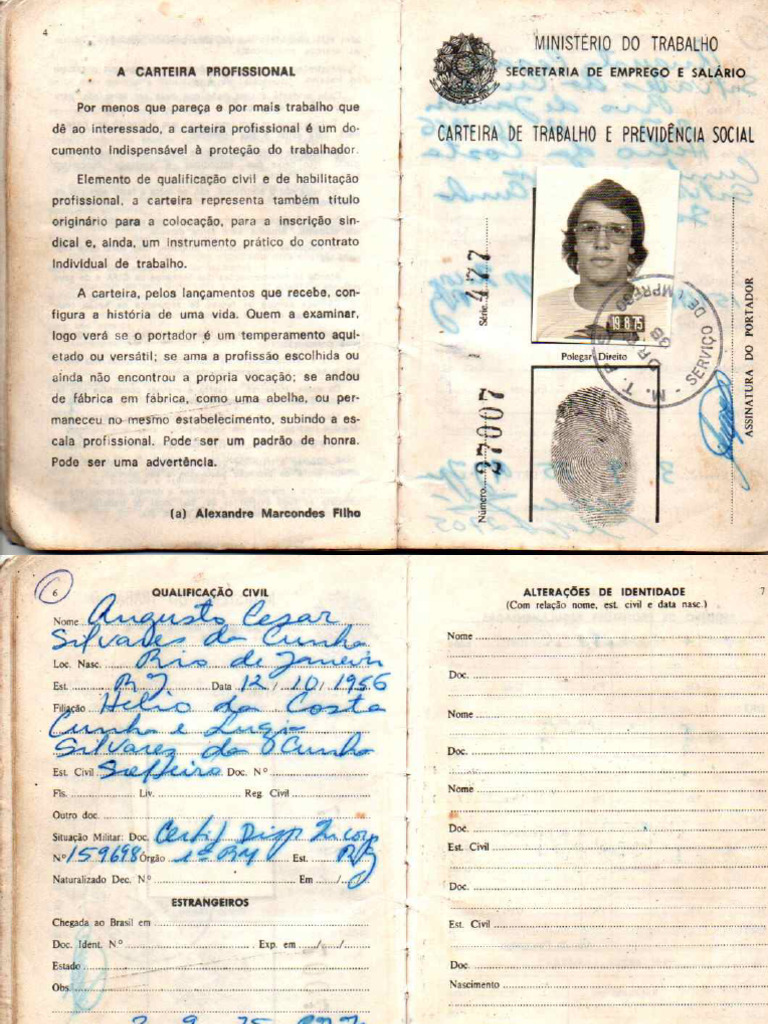 4
A CARTEIRA PROFISSIONAL
Por menos que pareça e por mais trabalho que
dê ao interessado, a carteira profissional é um do-
cumento indispensável à proteção do trabalhador.
Elemento de qualificação civil e de habilitação
profissional, a carteira representa também título
originário para a colocação, para a inscrição sin-
dical e, ainda, um instrumento prático do contrato
individual de trabalho.
A carteira, pelos lançamentos que recebe, con-
figura a história de uma vida. Quem a examinar,
logo verá se o portador é um temperamento aqui-
etado ou versátil; se ama a profissão escolhida ou
ainda não encontrou a própria vocação; se andou
de fábrica em fábrica, como uma abelha, ou per-
maneceu no mesmo estabelecimento, subindo a es-
cala profissional. Pode ser um padrão de honra.
Pode ser uma advertência.
(a) Alexandre Marcondes Filho
MINISTÉRIO DO TRABALHO
SECRETARIA DE EMPREGO E SALÁRIO
CARTEIRA DE TRABALHO E PREVIDÊNCIA SOCIAL
Número 27007 Série 477
19.8.75
Polegar Direito
SERVIÇO DE EMPREGO
ASSINATURA DO PORTADOR
6
QUALIFICAÇÃO CIVIL
Nome Augusto Cesar
Silvares da Cunha
Loc. Nasc. Rio de Janeiro
Est. RJ Data 12/10/1956
Filiação Helio da Costa
Cunha e Luzia
Silvares da Cunha
Est. Civil Solteiro Doc. Nº
Fls. Liv. Reg. Civil
Outro doc.
Situação Militar: Doc. Certif Disp Incorp
Nº 159698 Órgão 1ª RM Est. RJ
Naturalizado Dec. Nº Em / /
ESTRANGEIROS
Chegada ao Brasil em
Doc. Ident. Nº Exp. em / /
Estado
Obs.
7
ALTERAÇÕES DE IDENTIDADE
(Com relação nome, est. civil e data nasc.)
Nome
Doc.
Nome
Doc.
Nome
Doc.
Est. Civil
Doc.
Est. Civil
Doc.
Nascimento